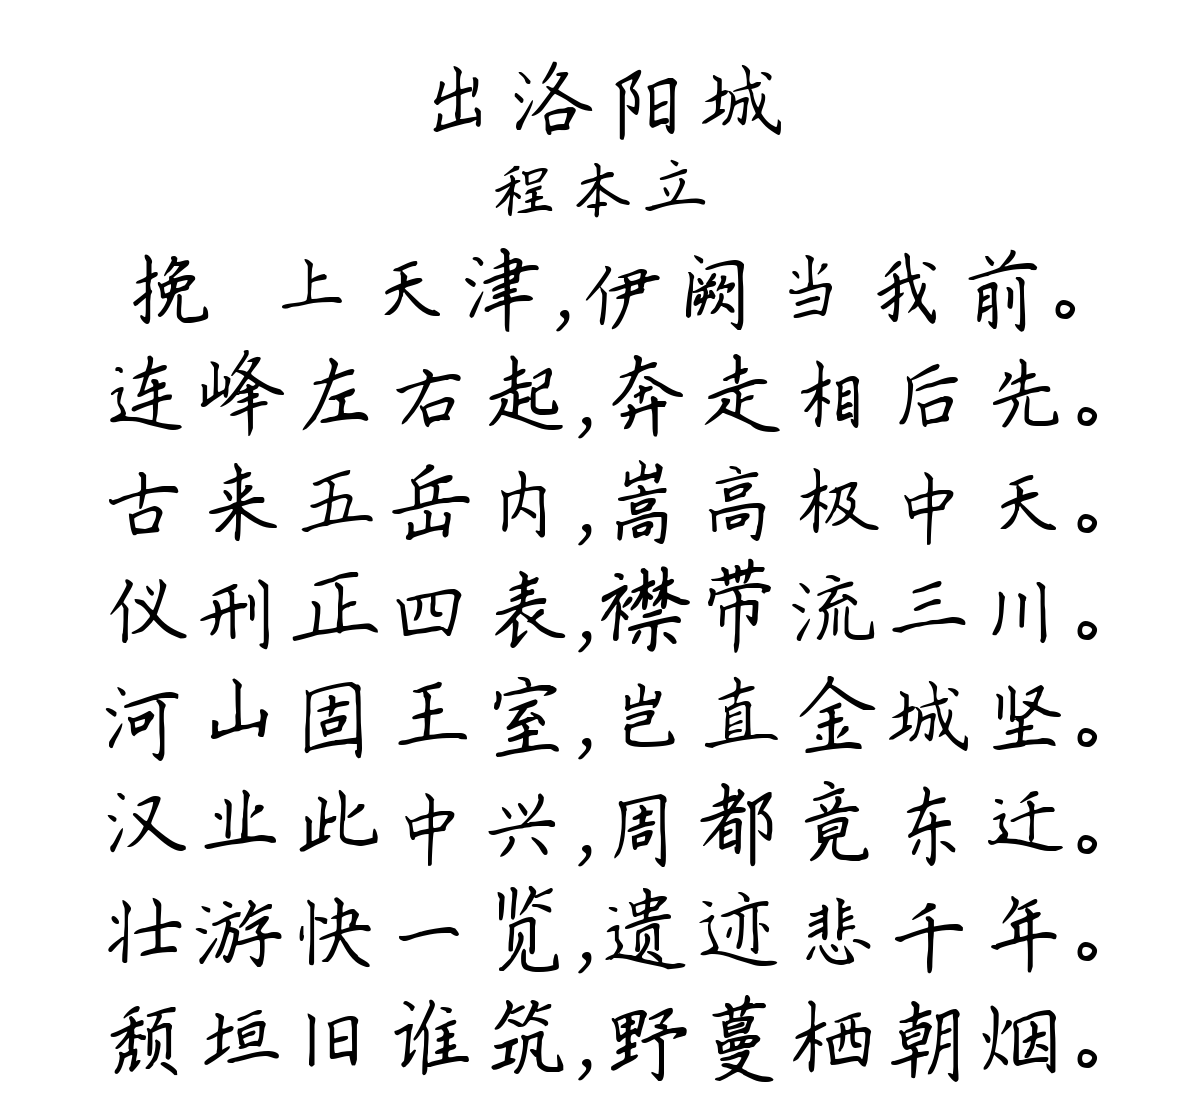 出洛阳城
程本立
挽 上天津,伊阙当我前。
连峰左右起,奔走相后先。
古来五岳内,嵩高极中天。
仪刑正四表,襟带流三川。
河山固王室,岂直金城坚。
汉业此中兴,周都竟东迁。
壮游快一览,遗迹悲千年。
颓垣旧谁筑,野蔓栖朝烟。